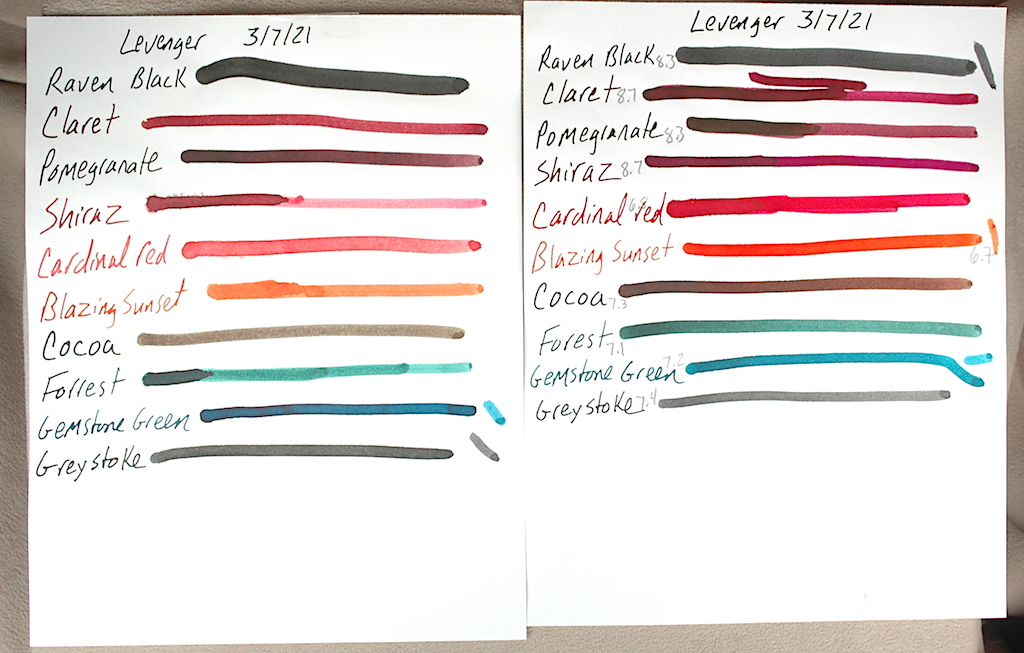 Levenger 3/7/21
Raven Black
Claret
Pomegranate
Shiraz
Cardinal red
Blazing Sunset
Cocoa
Forrest
Gemstone Green
Greystoke
Levenger 3/7/21
Raven Black 8.3
Claret 8.7
Pomegranate 8.3
Shiraz 8.7
Cardinal red 6.8
Blazing Sunset 6.7
Cocoa 7.3
Forest 7.1
Gemstone Green 7.2
Greystoke 7.4